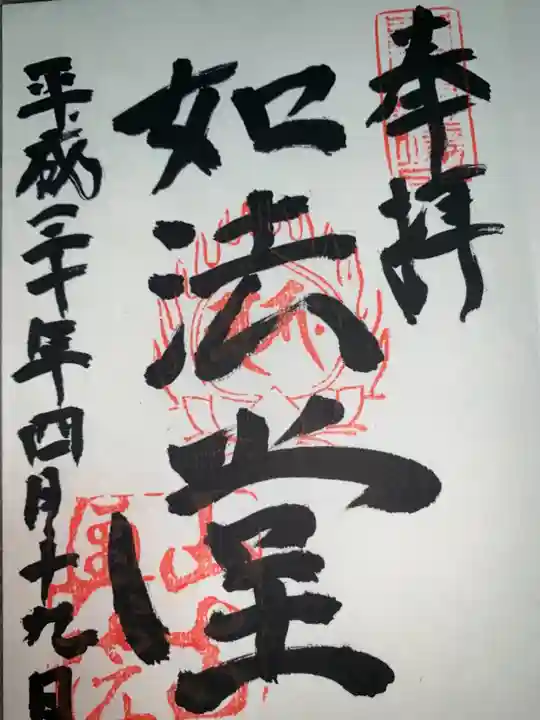 奉拝
如法堂
平成二十年四月十九日